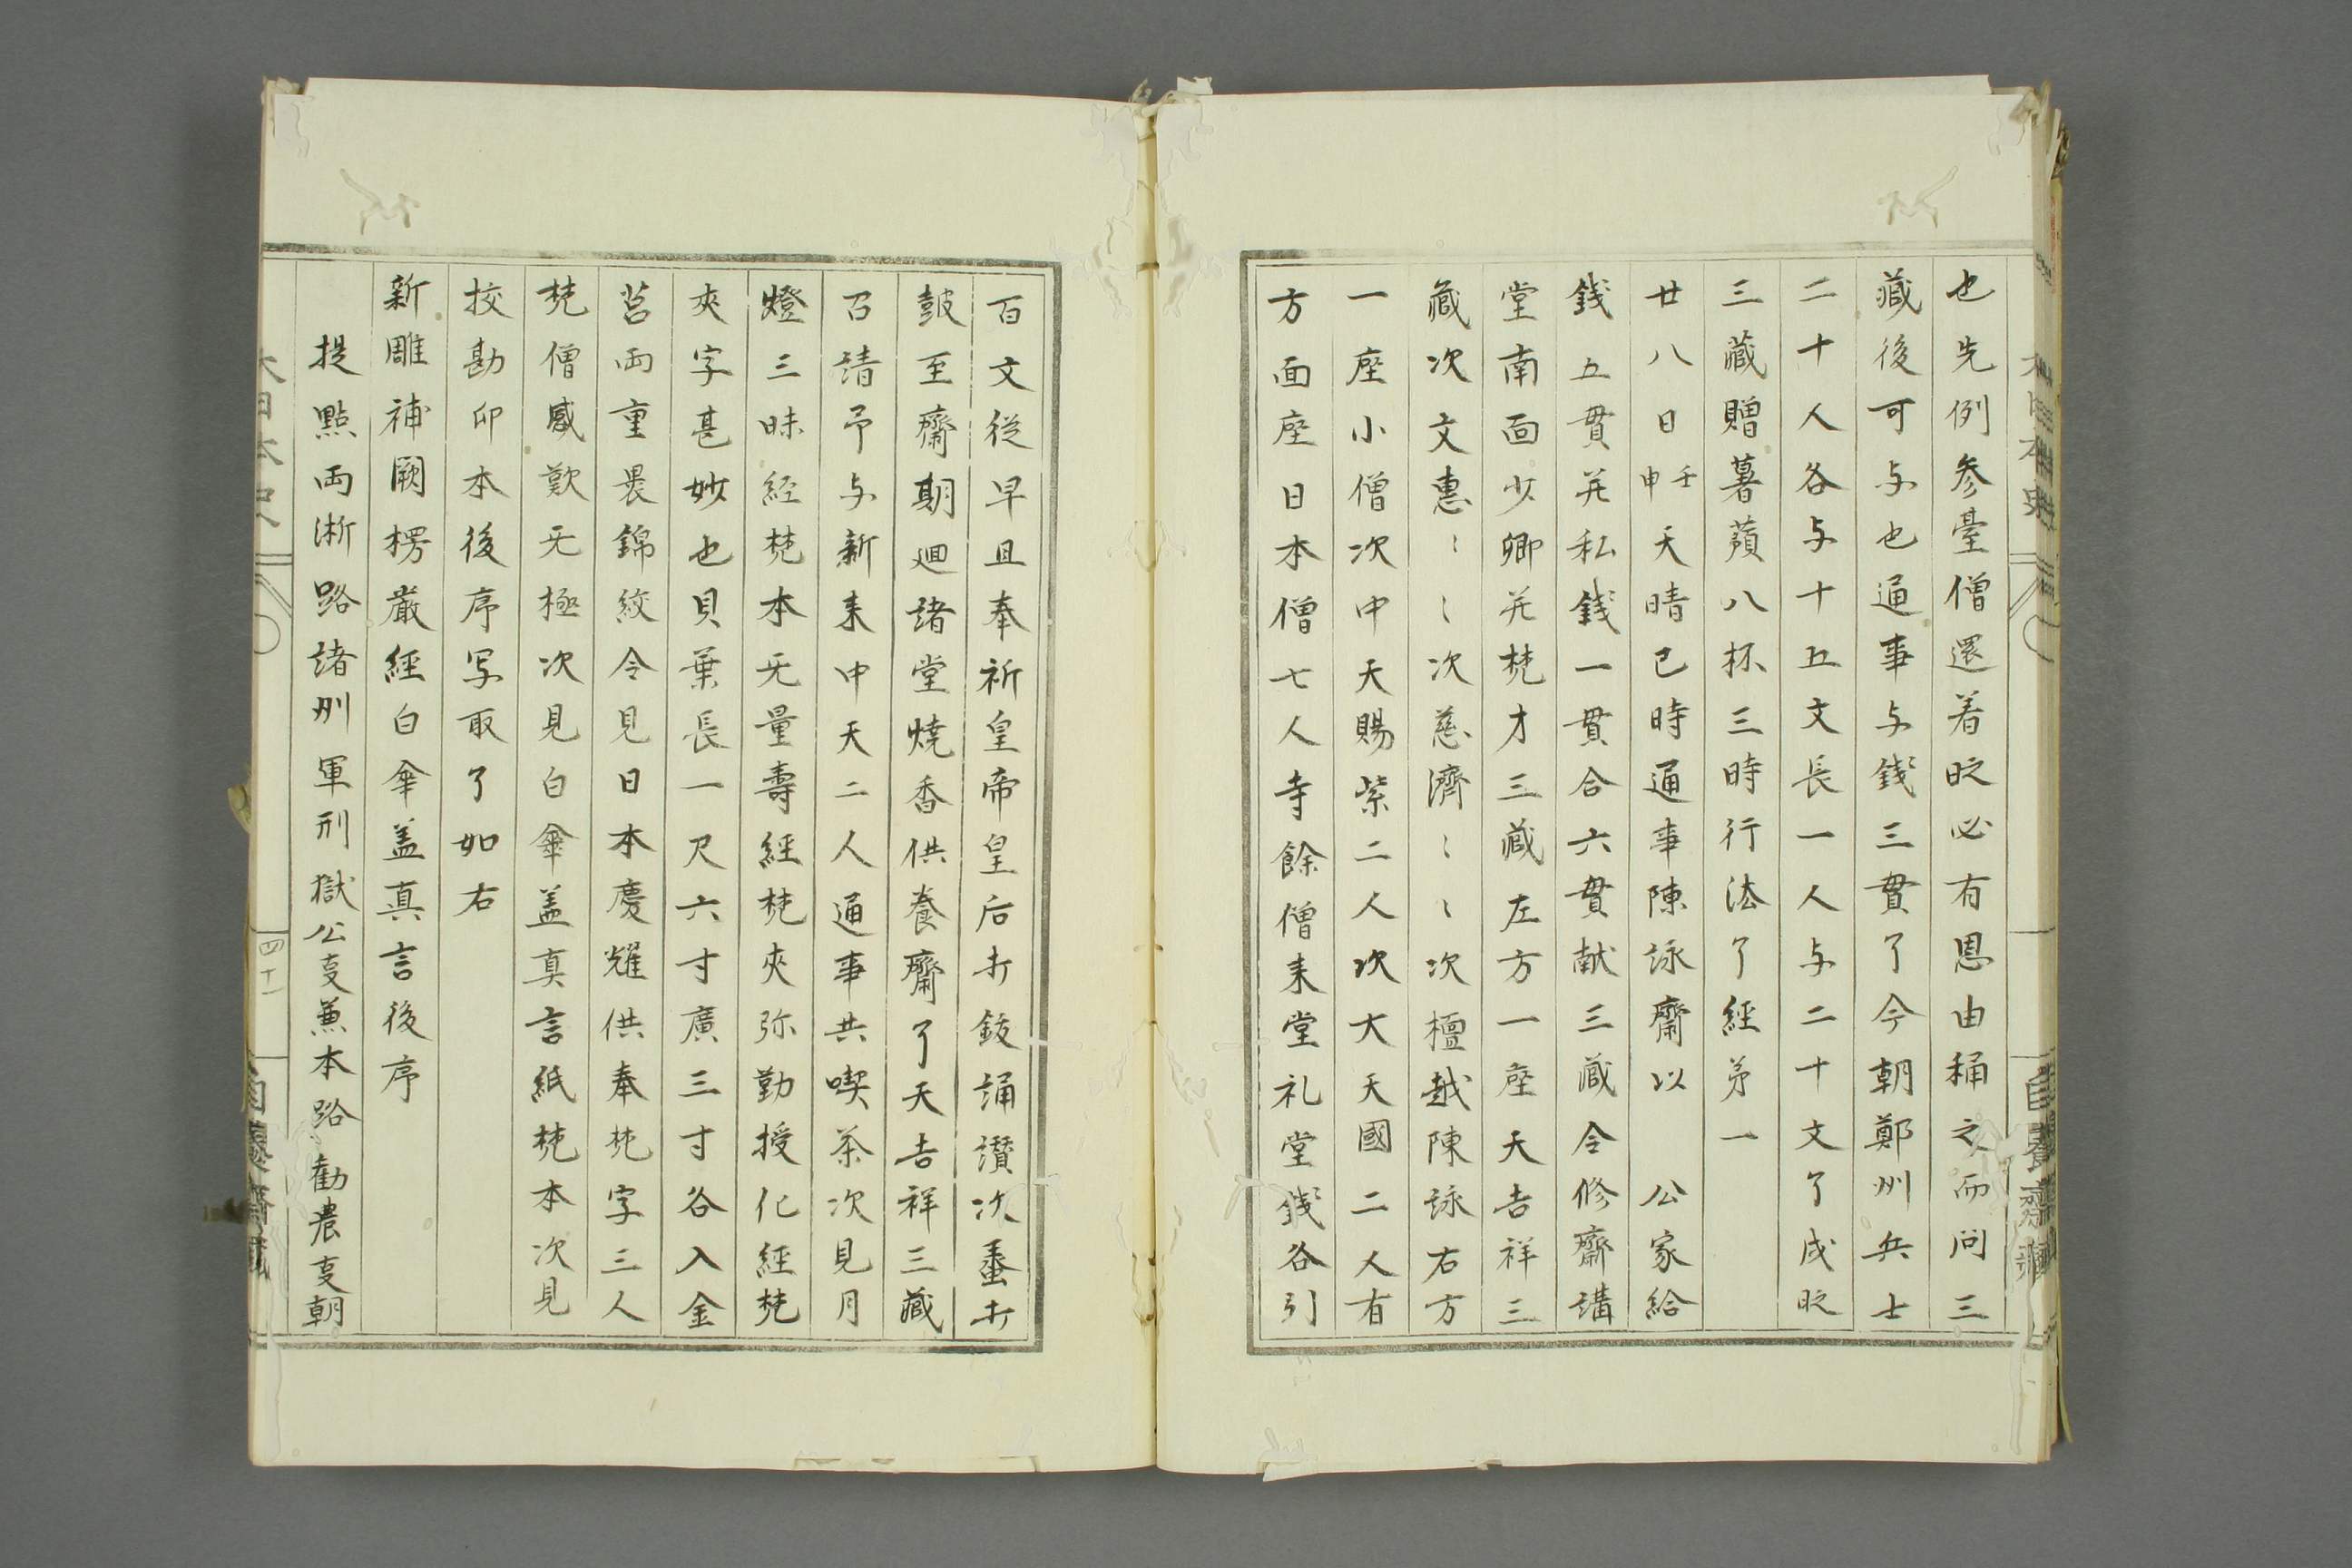 也先例参臺僧還着時必有恩由稱之而問三
藏後可与也通事与錢三貫了今朝鄭州兵士
二十人各与十五文長一人与二十文了戌時
三藏贈薯蕷八杯三時行法了經第一
廿八日壬申天晴巳時通事陳詠齋以　公家給
錢五貫并私錢一貫合六貫献三藏令修齋講
堂南面少卿并梵才三藏左方一座天吉祥三
藏次文惠〻〻次慈濟〻〻次檀越陳詠右方
一座小僧次中天賜紫二人次大天國二人有
方面座日本僧七人寺餘僧来堂礼堂錢各引
百文従早旦奉祈皇帝皇后打鈸誦讃次蚕打
皷至齋期廻諸堂燒香供養齋了天吉祥三藏
召請予与新来中天二人通事共喫茶次見月
燈三昧經梵本无量壽經梵夾弥勒授化經梵
夾字甚妙也貝葉長一尺六寸廣三寸各入金
筥両重畏錦紋令見日本慶耀供奉梵字三人
梵僧感歎无極次見白傘盖真言紙梵本次見
挍勘卯本後序写取了如右
新雕補闕楞嚴經白傘盖真言後序
提點両淅路諸州軍刑獄公叓兼本路勧農叓朝
大日本史
四十一